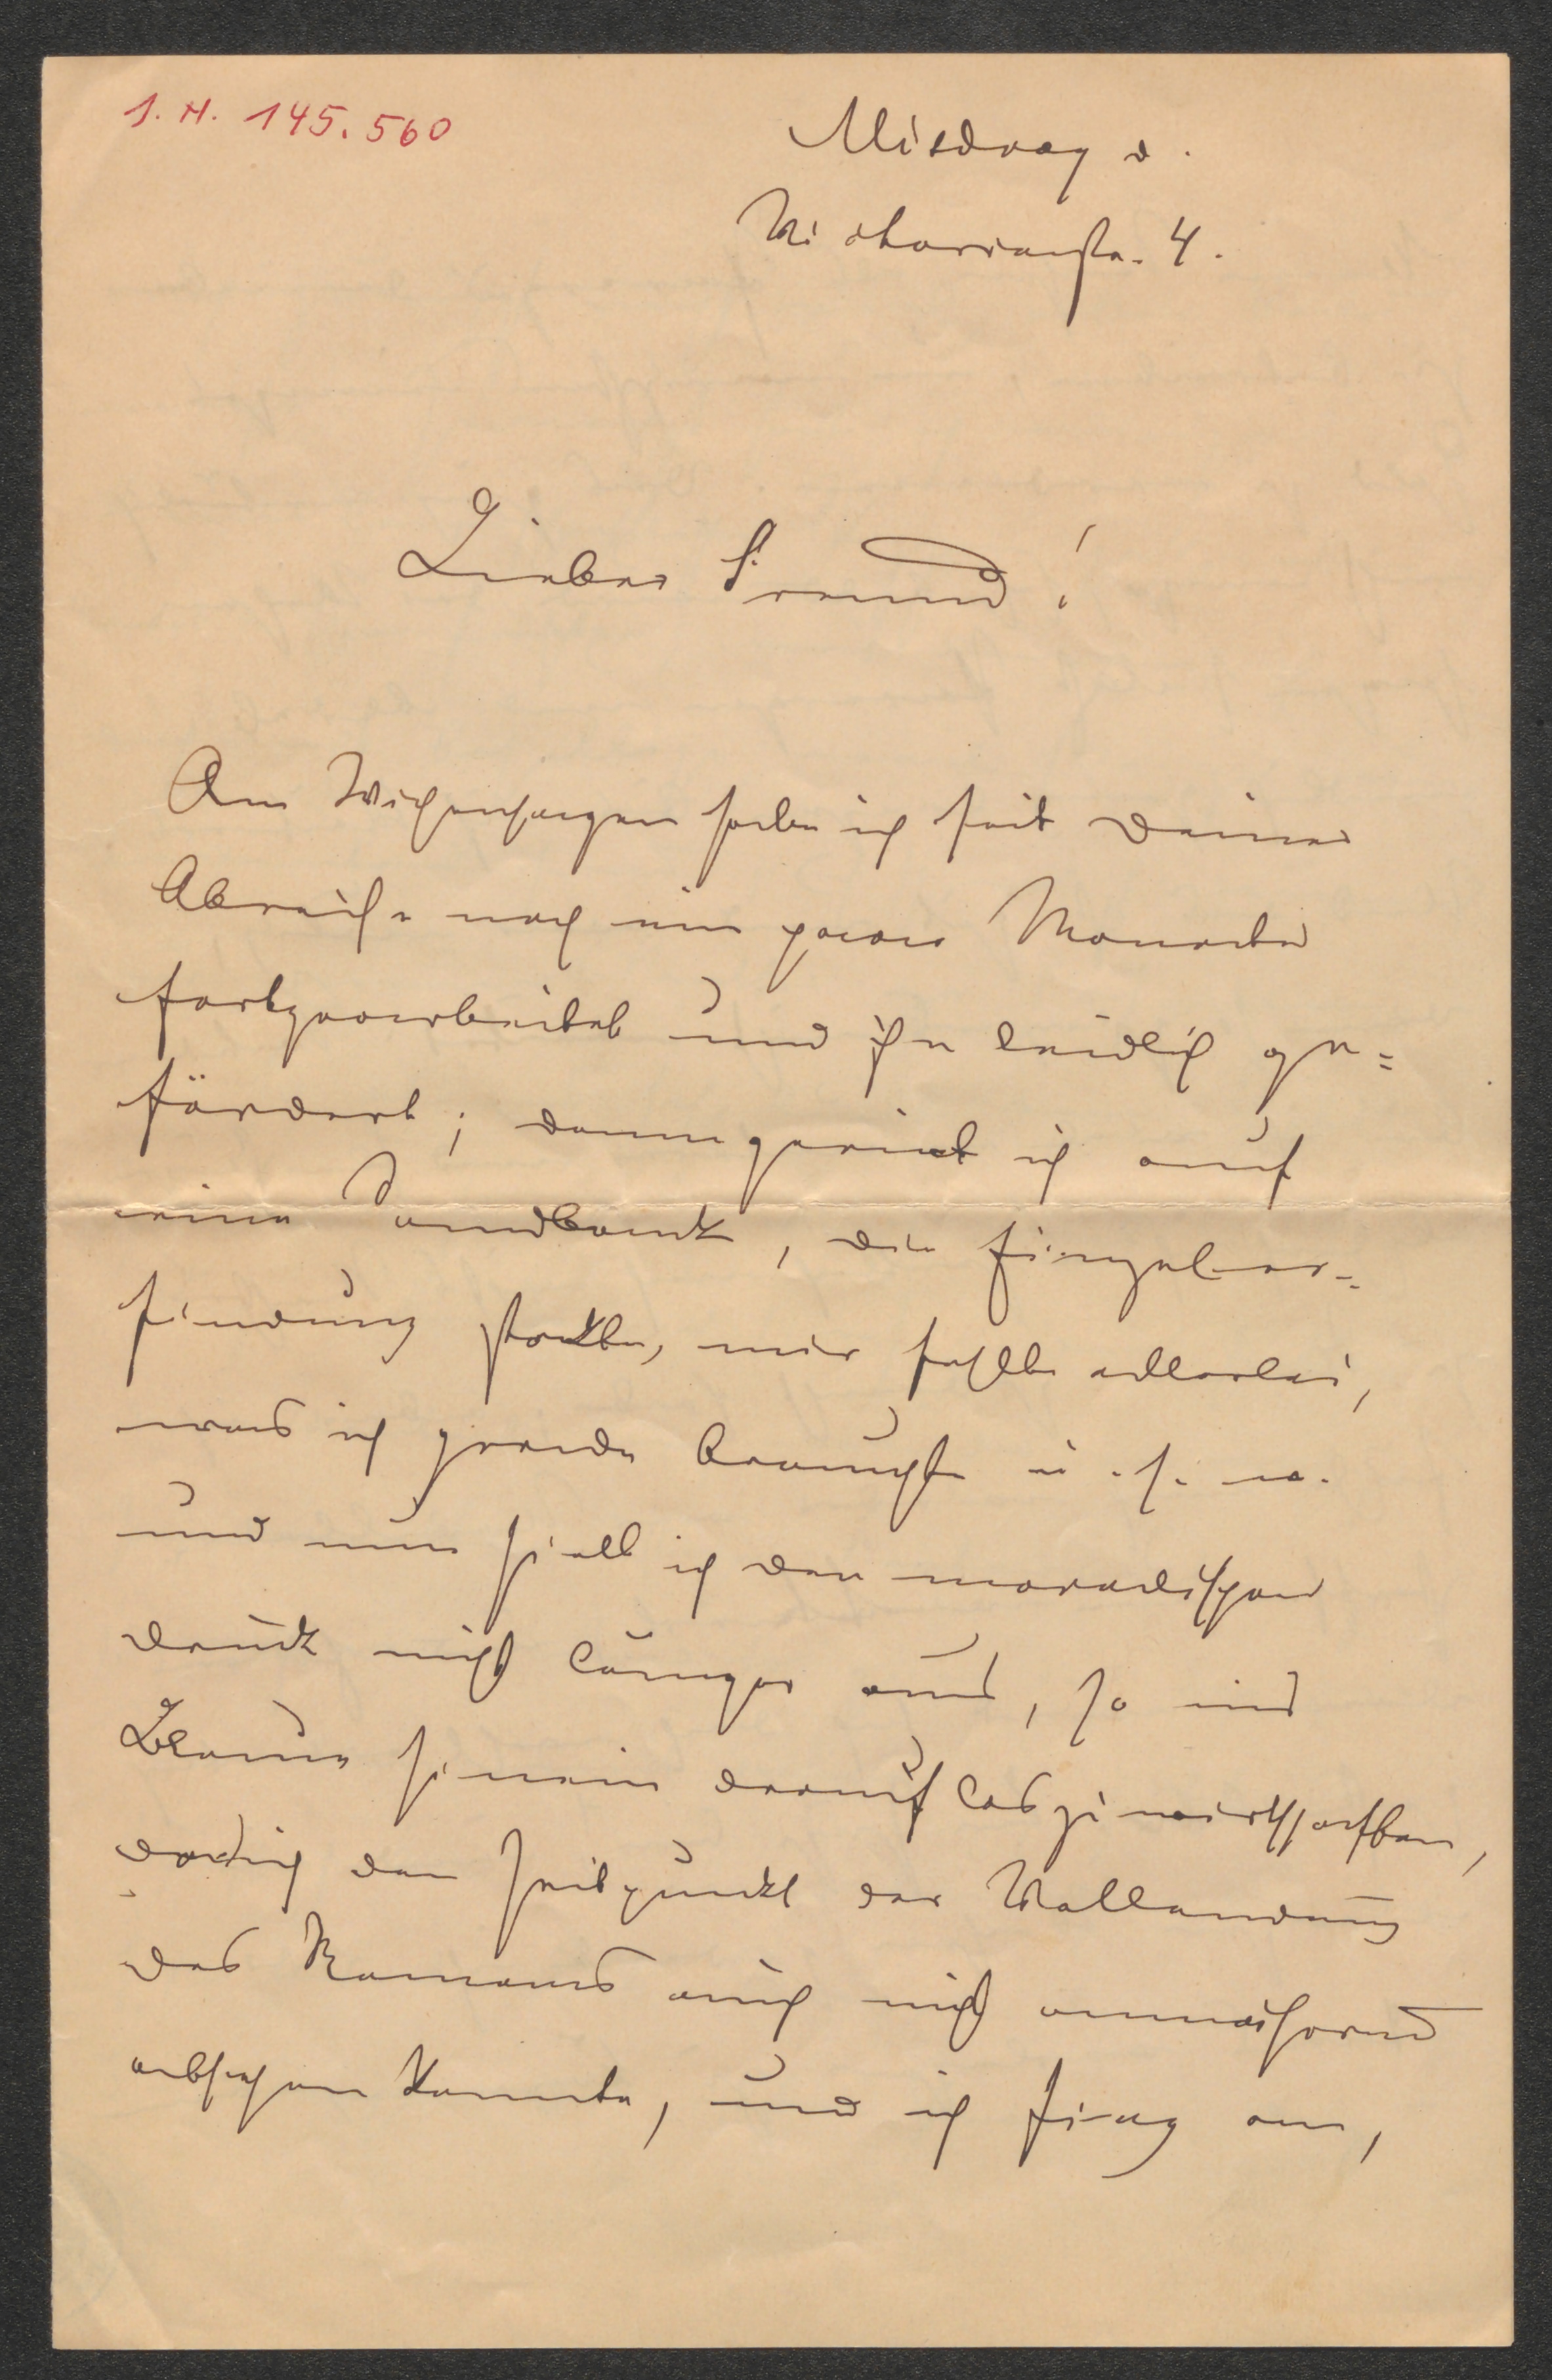 I. N. 145.560
Misdroy
Victoriastr. 4.
Lieber Freund!
Am habe ich seit Deiner
Abreise noch ein paar Monate
fortgearbeitet und ihn leidlich ge=
fördert; dann geriet ich auf
eine Sandbank, die Einzeler=
findung stockte, mir fehlte allerlei,
was ich gerade brauchte u. s. w.
und nun hielt ich den moralischen
Druck nicht länger aus, so ins
Blaue hinein darauf loszuwirthschaften,
da ich den Zeitpunkt der Vollendung
des Romans auch nicht annähernd
absehen konnte, und ich fing an,